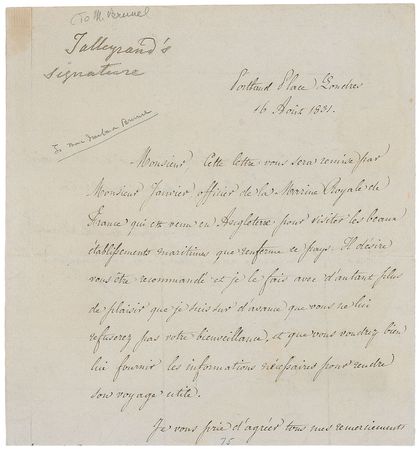 (To M. Brunel)
Talleyrand's
signature
Portland Place, Londres
16 Août 1831.
Monsieur Cette lettre vous sera remise par
Monsieur Janvier officier de la Marine Royale de
France qui est venu en Angleterre pour visiter les beaux
établissements maritimes que renferme ce pays. Il désire
vous être recommandé et je le fais avec d'autant plus
de plaisir que je suis sur d'avance que vous ne lui
refuserez pas votre bienveillance, et que vous voudrez bien
lui fournir les informations nécessaires pour rendre
son voyage utile.
Je vous prie d'agréer tous mes remerciements
75